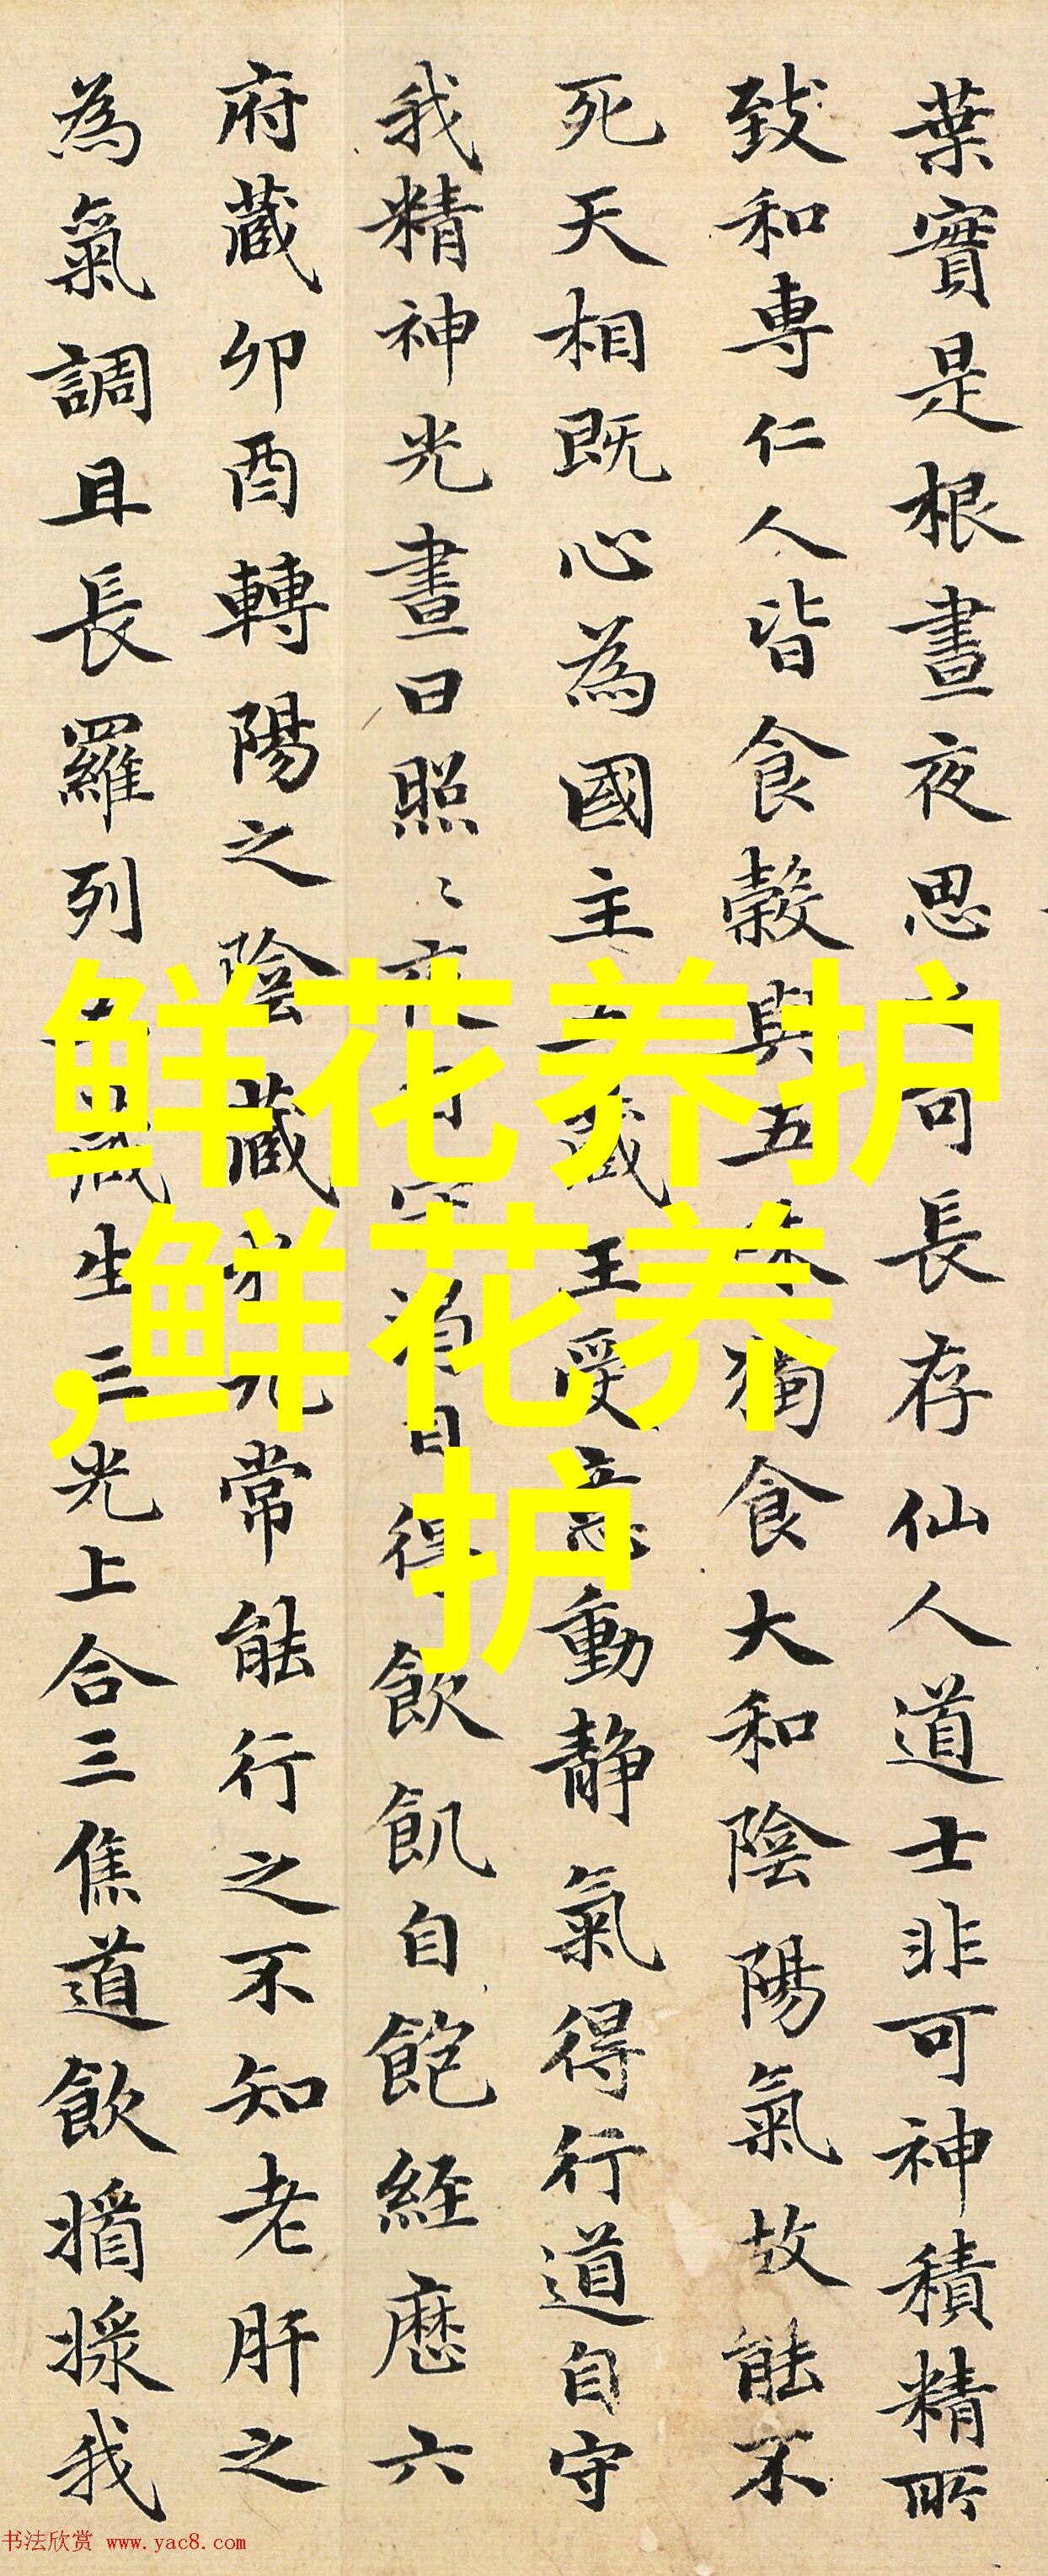 葉實是根晝夜思可長存仙人道士非可神積精所
致和專仁人皆食穀與五味獨食大和陰陽氣故能不
死天相既心為國主五藏王受意動静氣得行道自守
我精神光晝日照〻夜行守渴自得飲飢自飽經歴六
府藏卯酉轉陽之陰藏常能行之不知老肝之
為氣調且長羅列五藏生三光上合三焦道飲我
鲜花养护
,鲜花养
护
书法欣赏 www.yac8.com